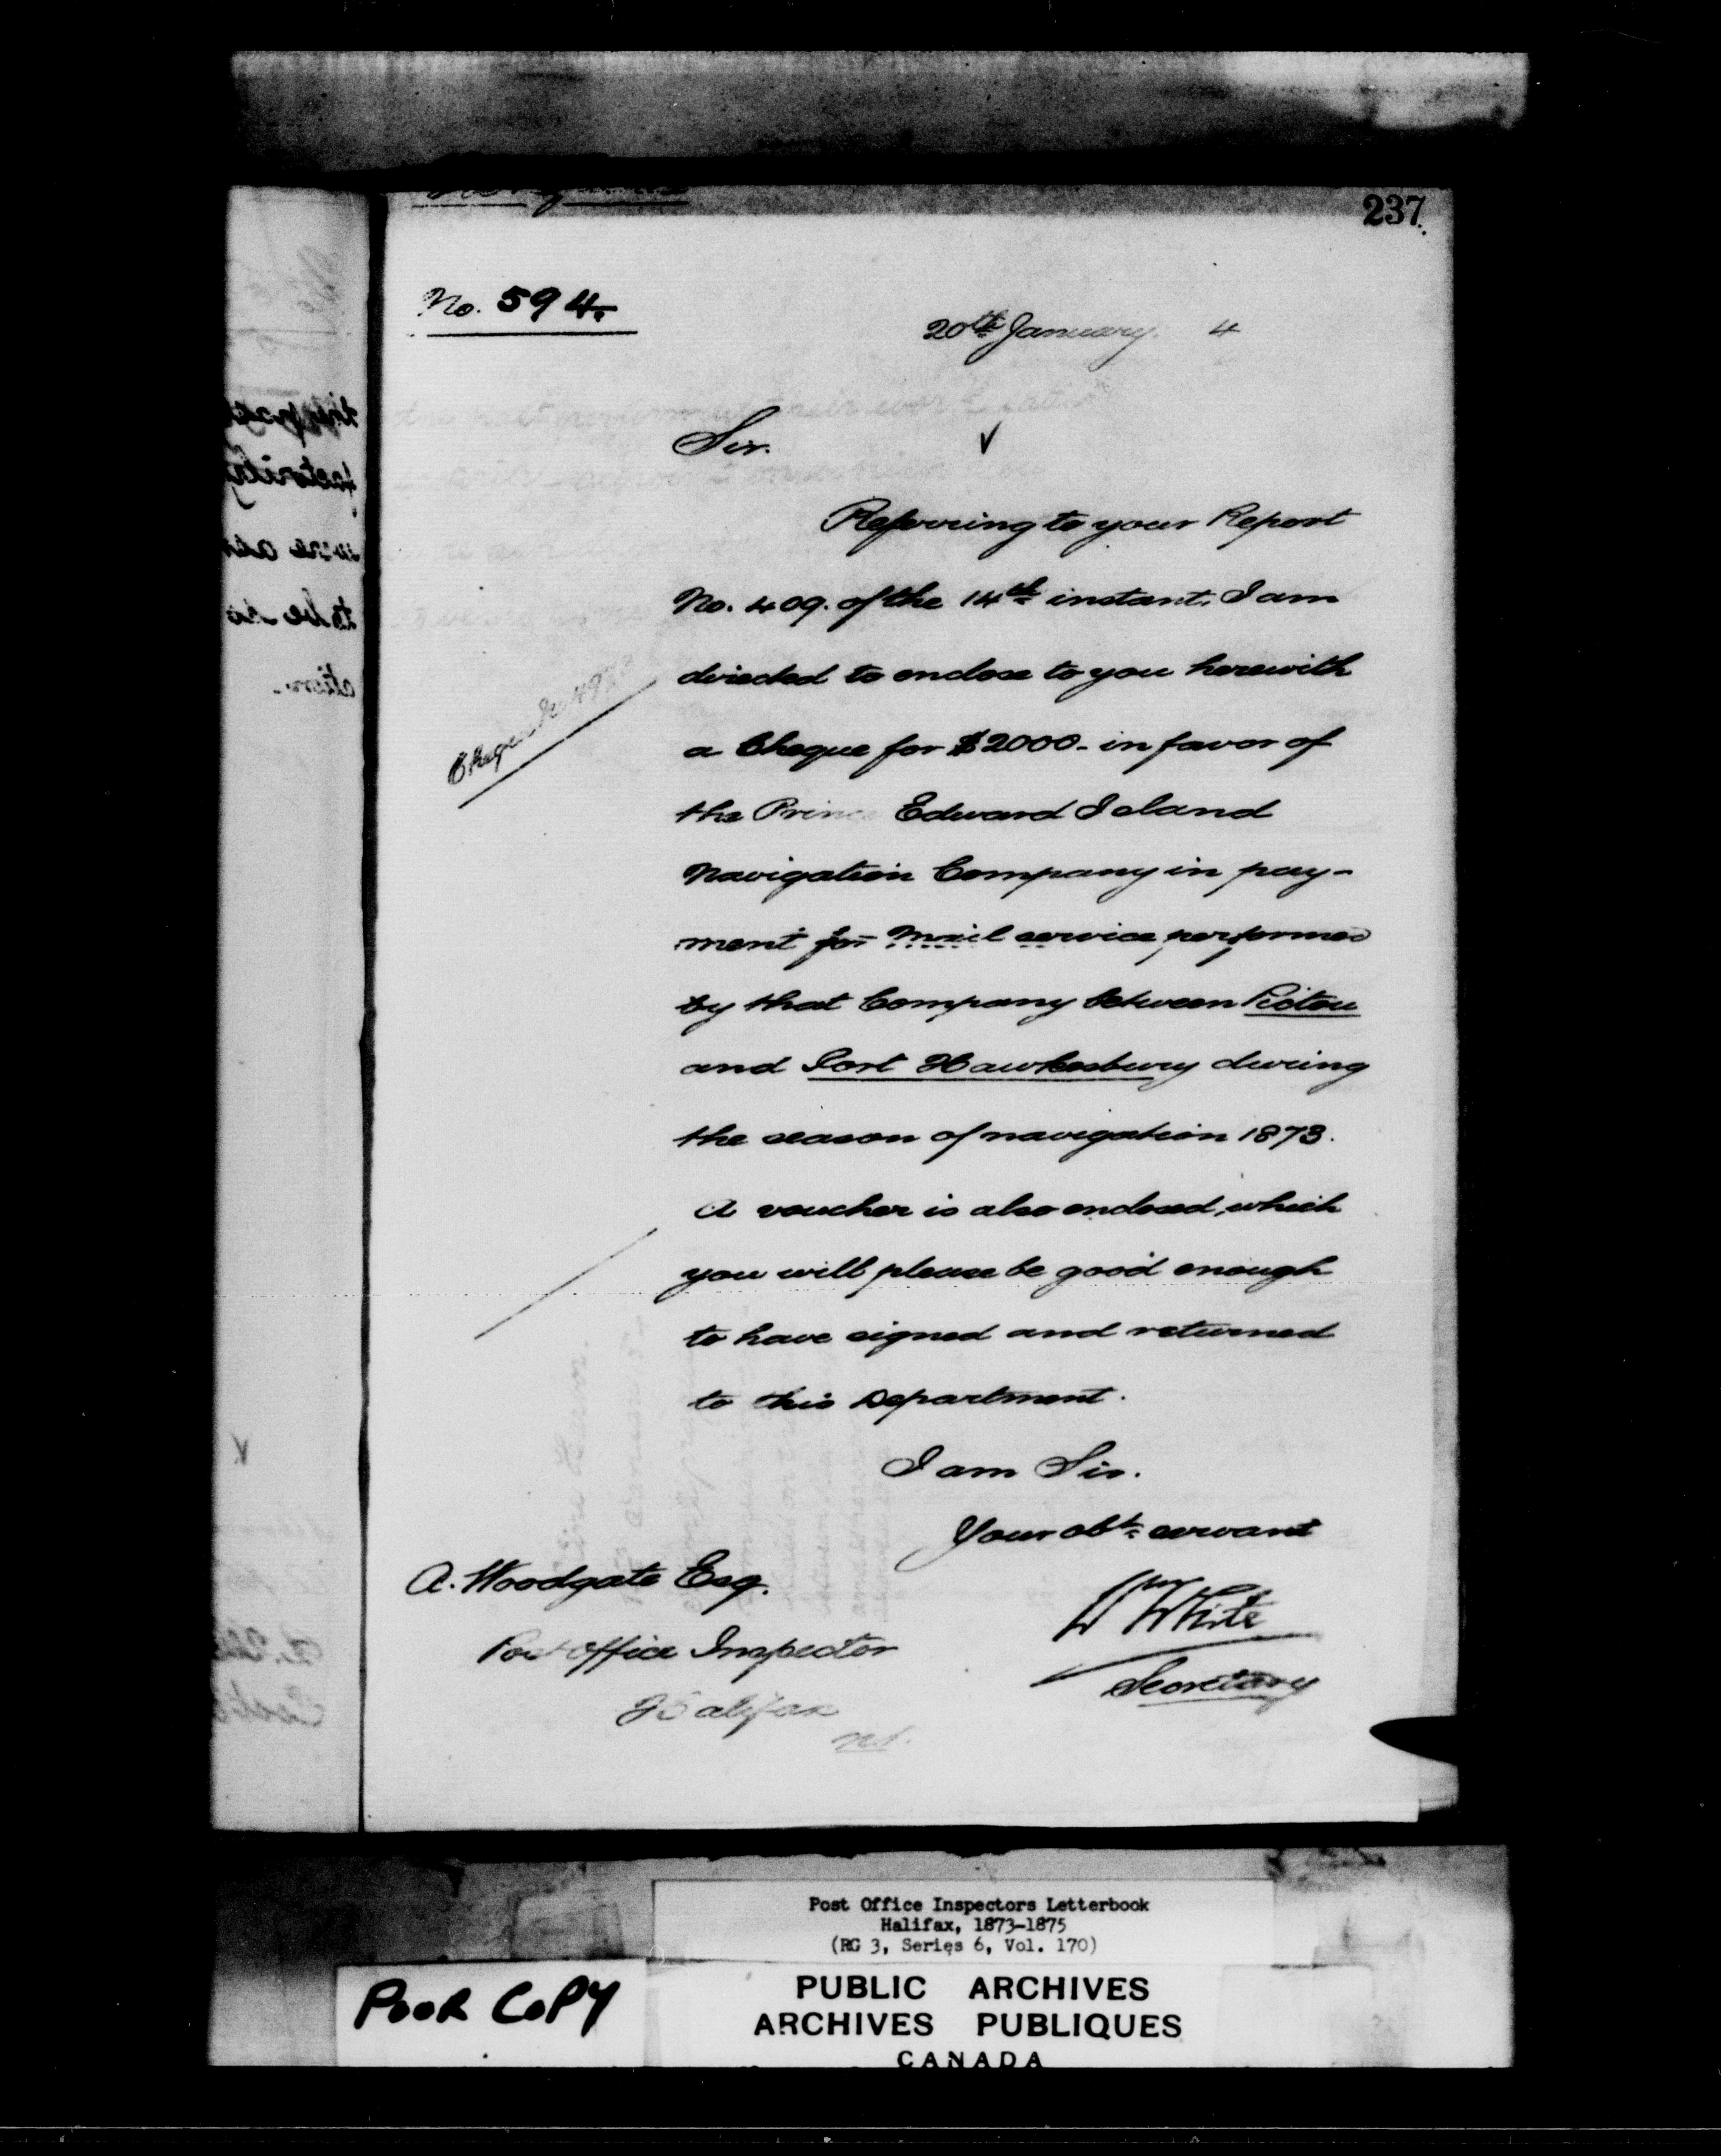 237.
No. 594.
20th January. 4
Sir.
Referring to your Report
No. 409. of the 14th instant. I am
directed to enclose to you herewith
a Cheque for $2000- in favor of
the Prince Edward Island
Navigation Company in pay-
ment for Mail service performed
by that Company between Pictou
and Port Hawkesbury during
the season of navigation 1873.
A voucher is also enclosed, which
you will please be good enough
to have signed and returned
to this Department.
I am Sir.
Your obt. servant
Wm White
Secretary
A. Woodgate Esq.
Post Office Inspector
Halifax
N.S.
Cheque No.
Post Office Inspectors Letterbook
Halifax, 1873-1875
(RG 3, Series 6, Vol. 170)
POOR COPY
PUBLIC ARCHIVES
ARCHIVES PUBLIQUES
CANADA